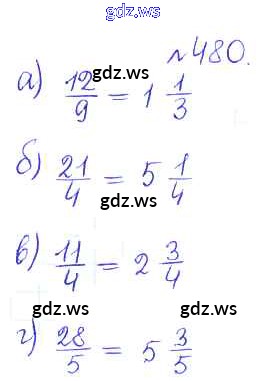 gdz.ws
№480.
а) 12/9 = 1 1/3
gdz.ws
gdz.ws
б) 21/4 = 5 1/4
gdz.ws
в) 11/4 = 2 3/4
gdz.ws gdz.ws
г) 28/5 = 5 3/5
gdz.ws